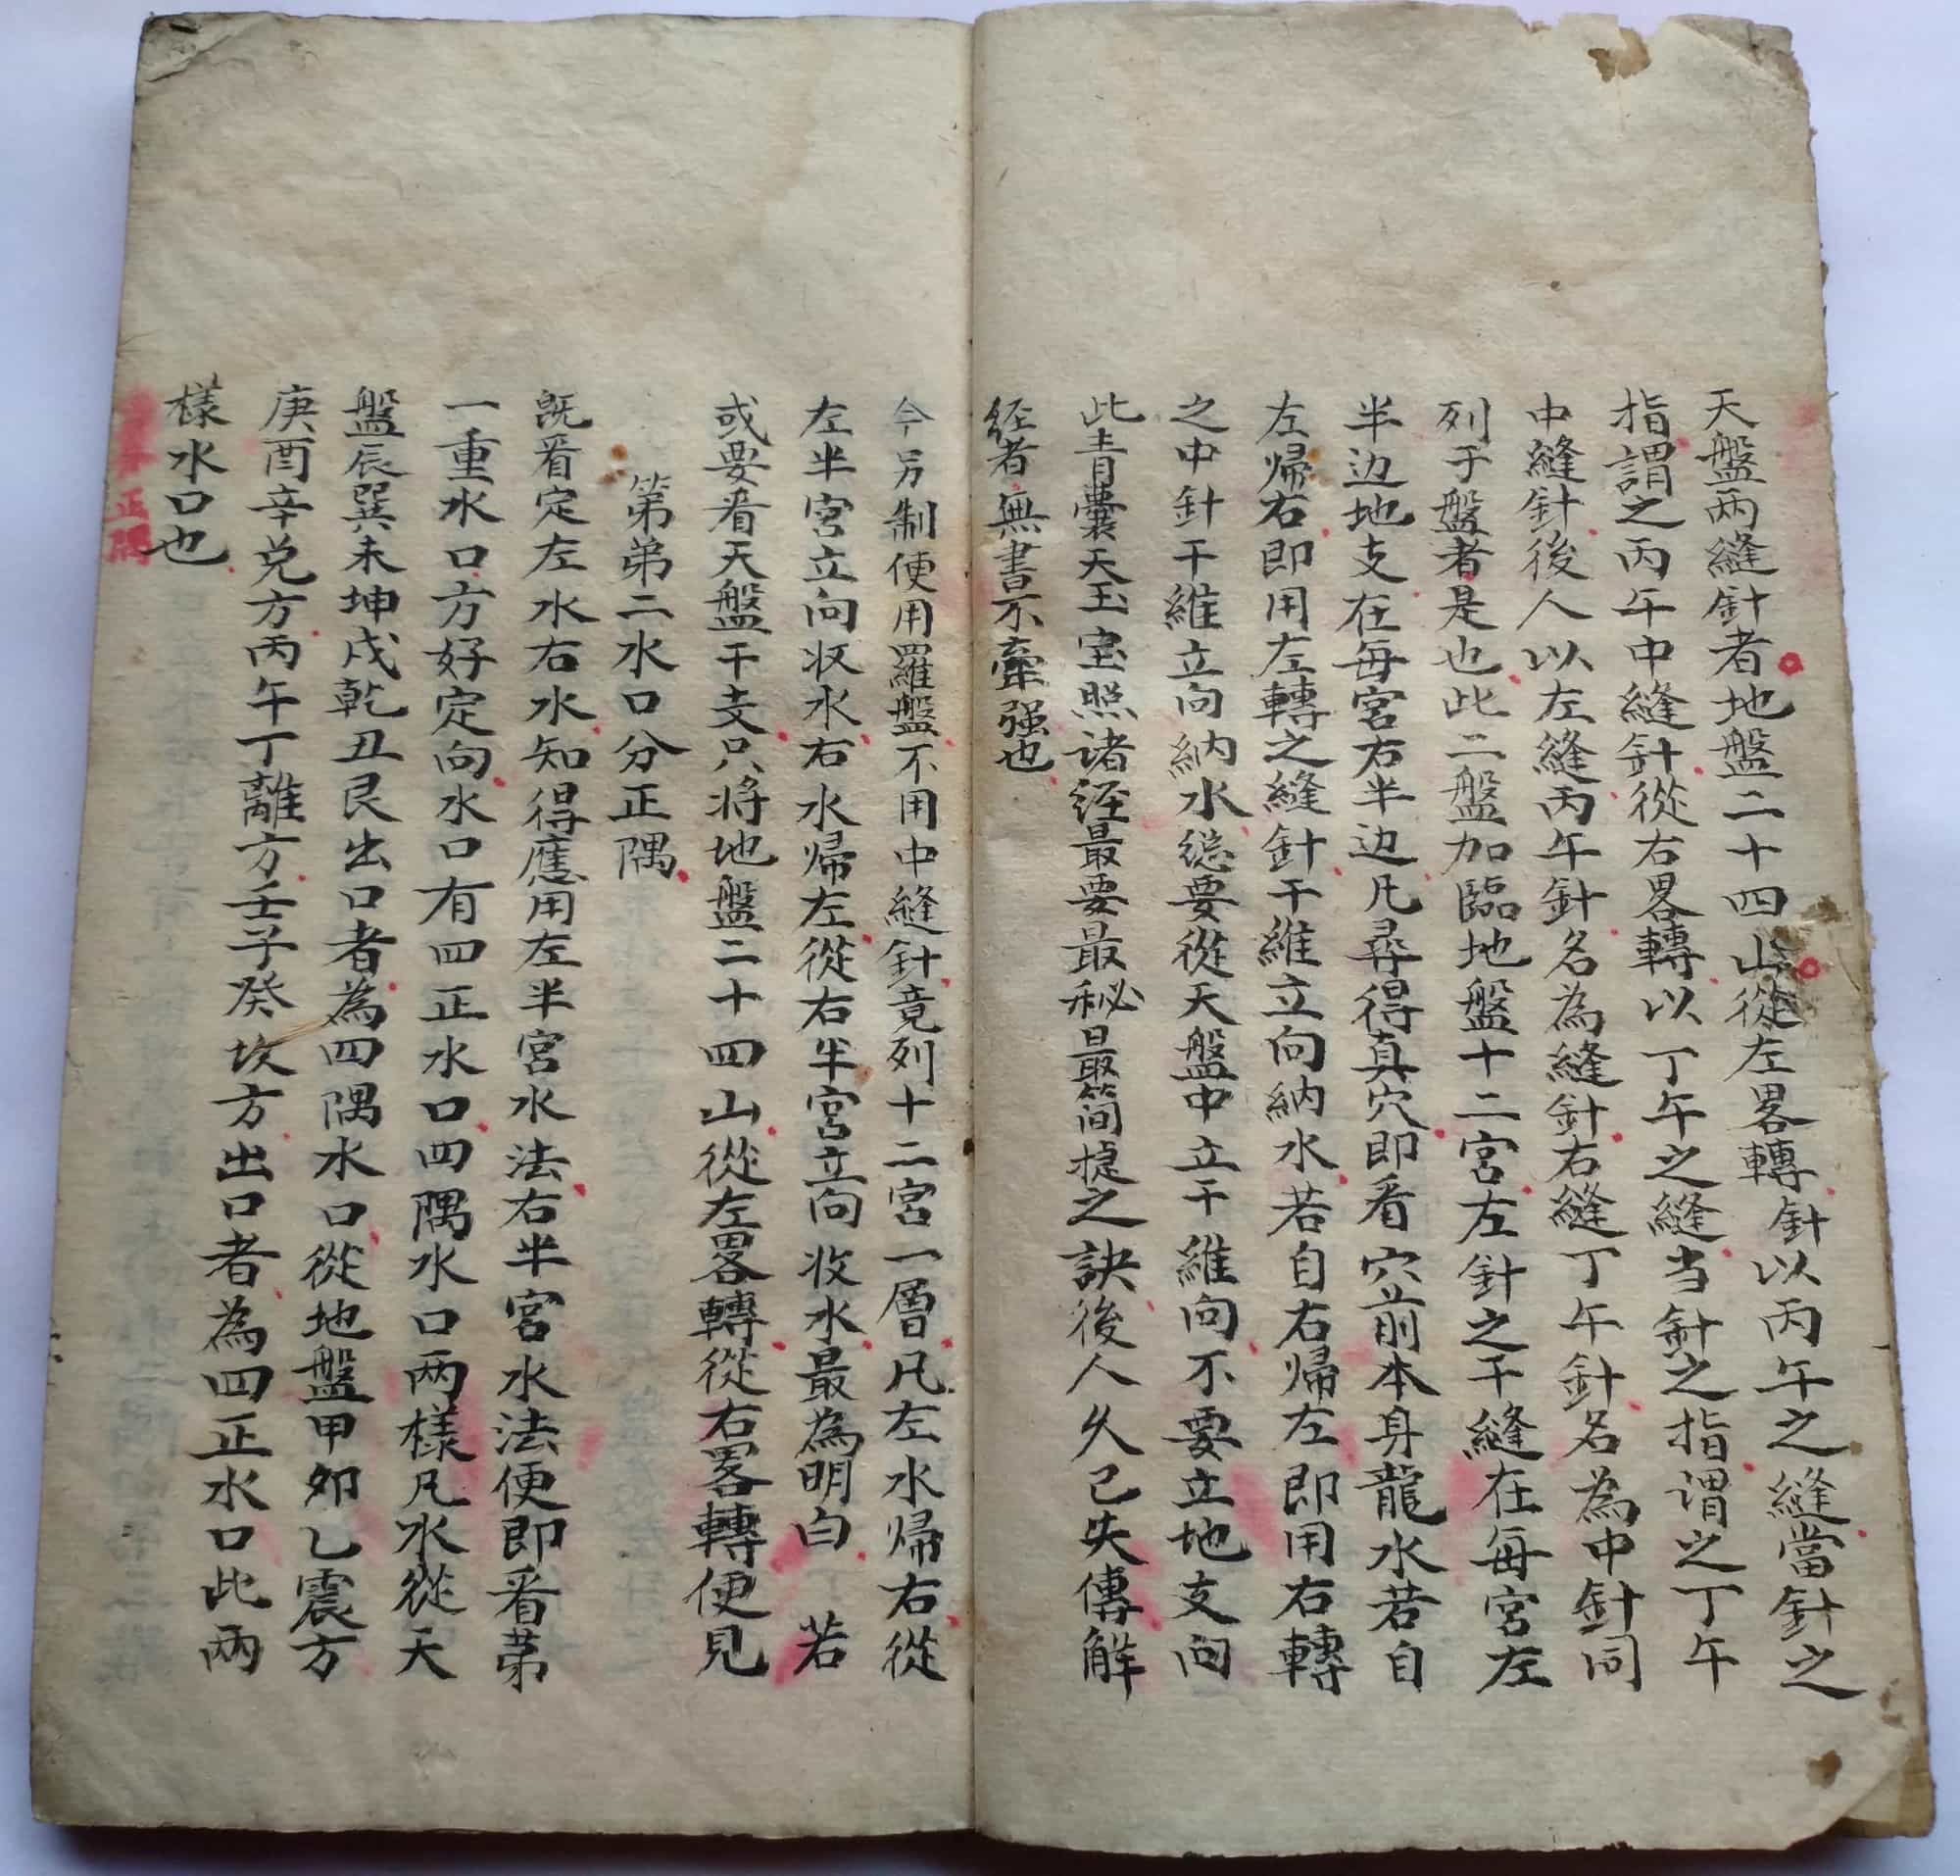 天盤两縫針者地盤二十四山從左畧轉針以丙午之縫當針之
指謂之丙午中縫針從右畧轉以丁午之縫当針之指谓之丁午
中縫針後人以左縫丙午針名為縫針右縫丁午針名為中針同
列于盤者是也此二盤加臨地盤十二宮左針之干縫在每宮左
半边地支在每宮右半边凡尋得真穴即看穴前本身龍水若自
左歸右即用左轉之縫針干維立向納水若自右歸左即用右轉
之中針干維立向納水縂要從天盤中立干維向不要立地支向
此青囊天玉宝照诸经最要最秘最简捷之訣後人久已失傳解
经者無書不牽强也
今另制便用羅盤不用中縫針竟列十二宮一層凡左水歸右從
左半宮立向收水右水歸左從右半宮立向收水最為明白若
或要看天盤干支只将地盤二十四山從左畧轉從右畧轉便見
第弟二水口分正隅
既看定左水右水知得應用左半宮水法右半宮水法便即看第
一重水口方好定向水口有四正水口四隅水口两樣凡水從天
盤辰巽未坤戌乾丑艮出口者為四隅水口從地盤甲夘乙震方
庚酉辛兑方丙午丁離方壬子癸坎方出口者為四正水口此兩
樣水口也
正隅